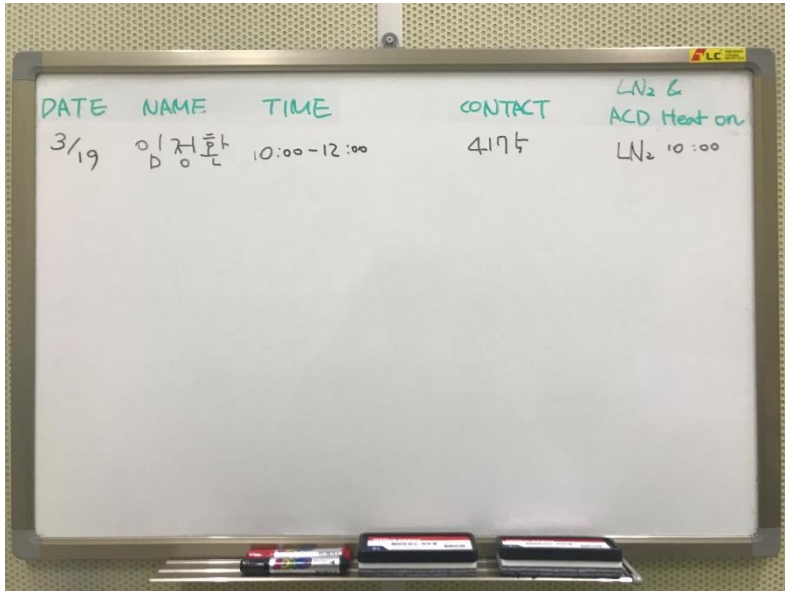 DATE NAME TIME CONTACT LN₂ & ACD Heat on
3/19 임정환 10:00-12:00 4175 LN₂ 10:00
LC